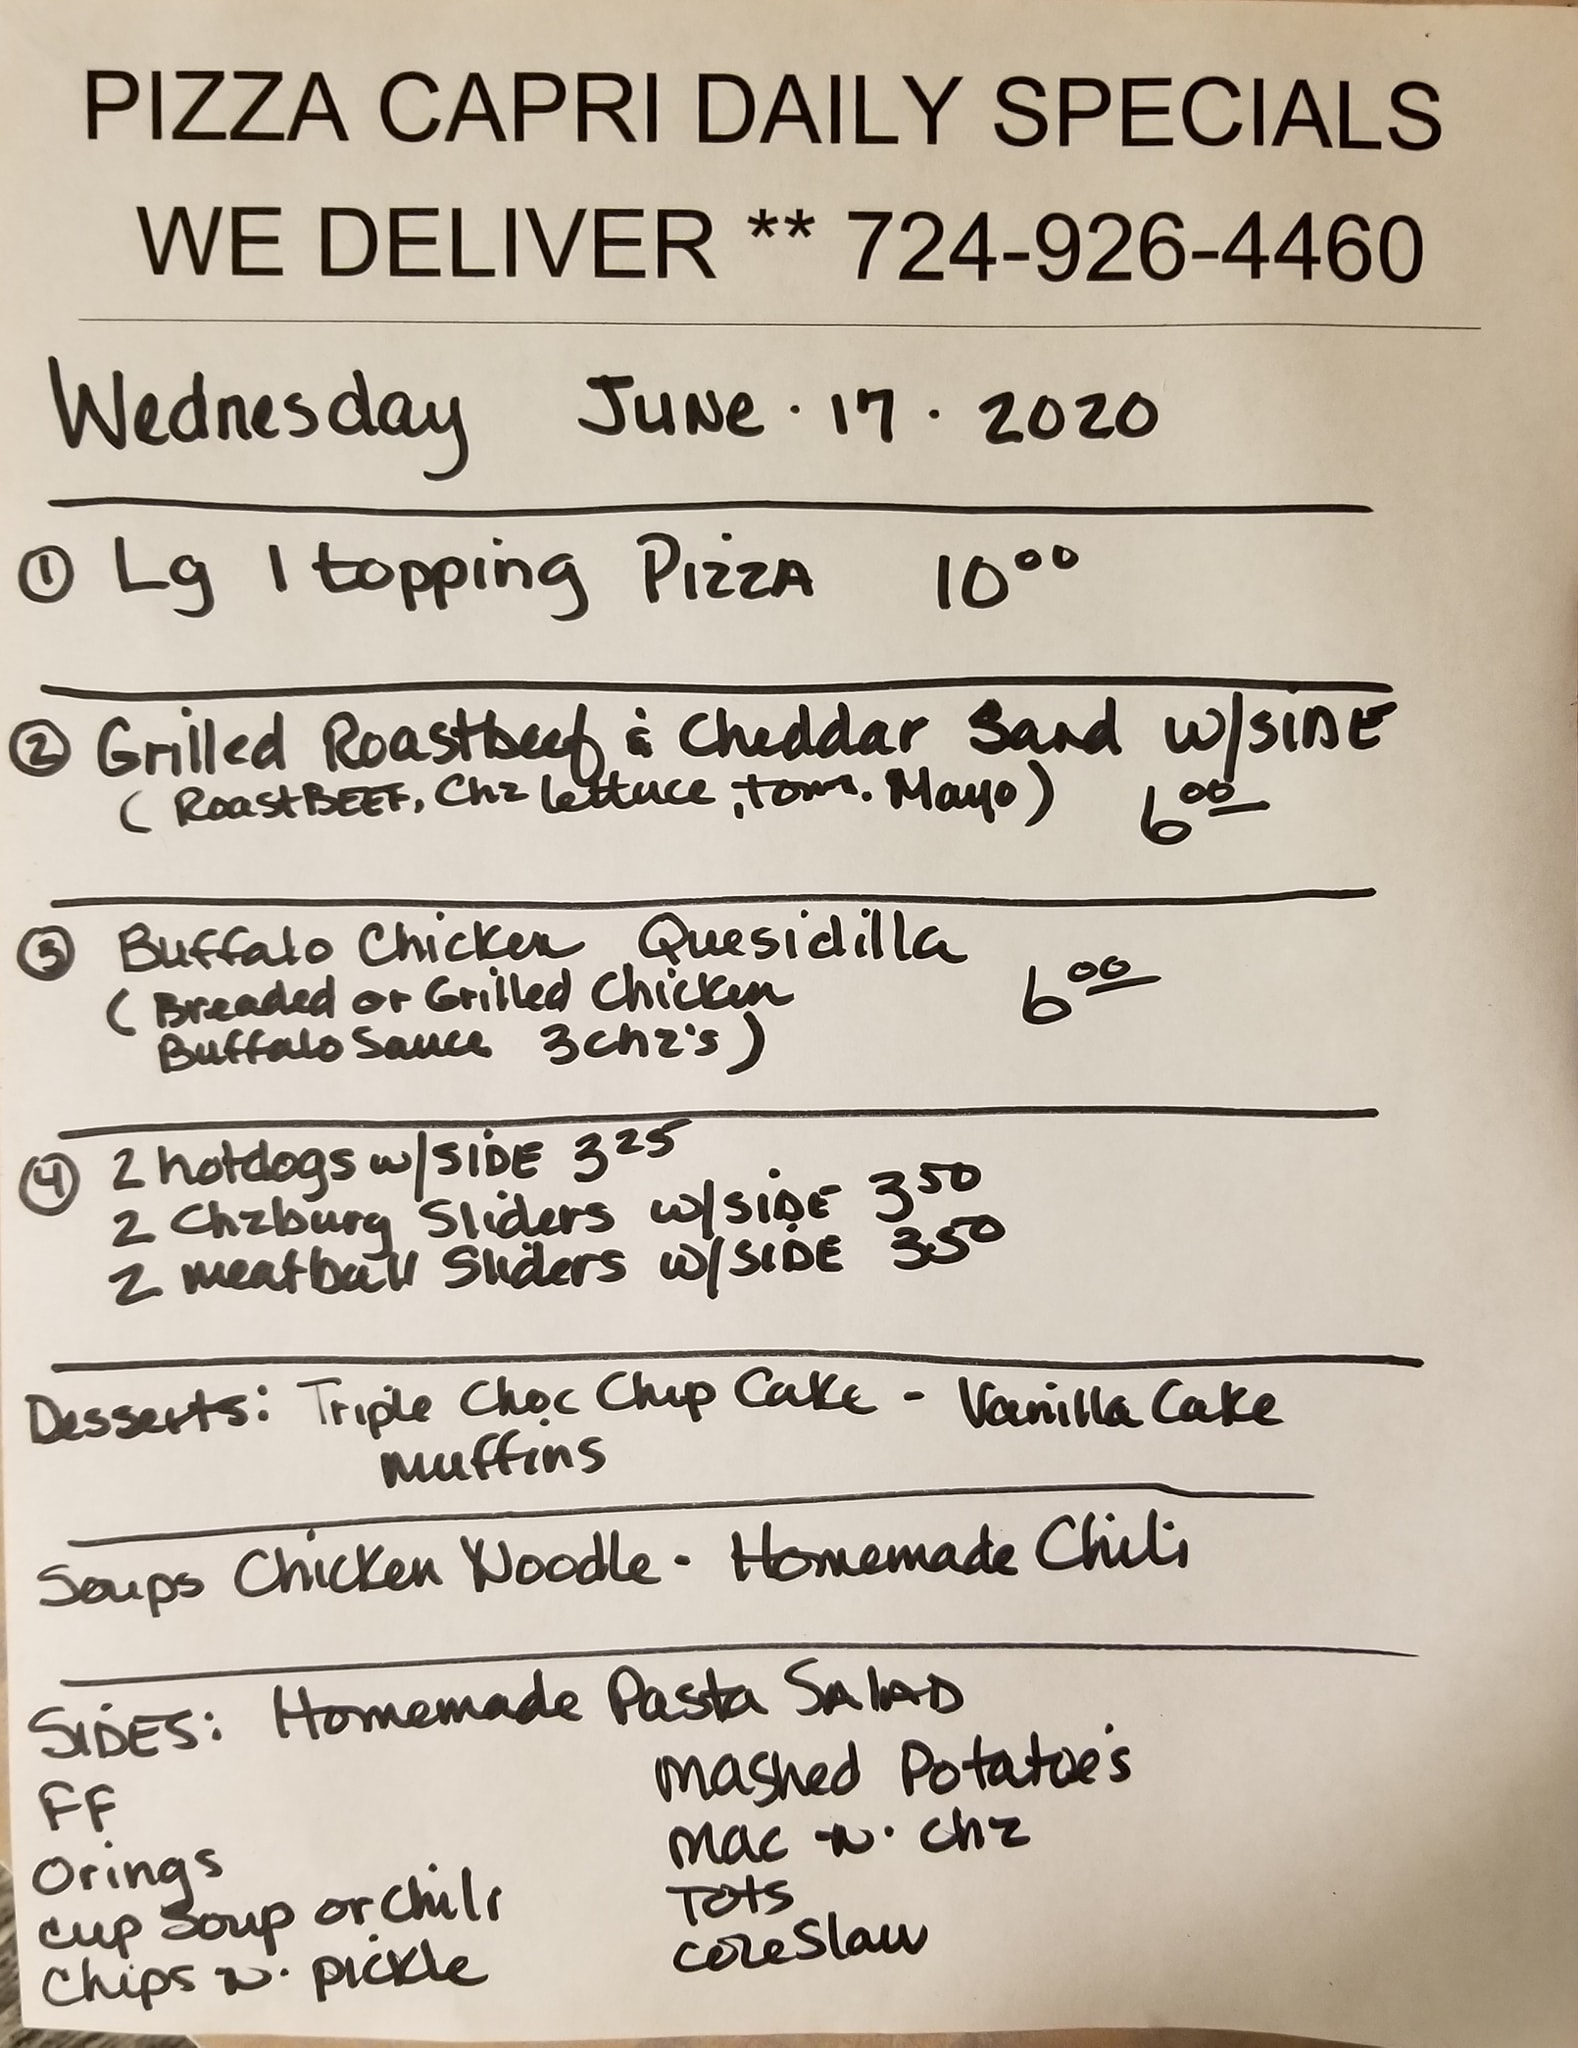 PIZZA CAPRI DAILY SPECIALS
WE DELIVER ** 724-926-4460
Wednesday June · 17 · 2020
① Lg 1 topping Pizza 10⁰⁰
② Grilled Roastbeef & Cheddar Sand w/SIDE
( RoastBEEF, Chz lettuce, tom. Mayo) 6⁰⁰
③ Buffalo Chicken Quesidilla
( Breaded or Grilled Chicken 6⁰⁰
Buffalo Sauce 3 chz's )
④ 2 hotdogs w/SIDE 3²⁵
2 Chzburg Sliders w/SIDE 3⁵⁰
2 meatball Sliders w/SIDE 3.⁵⁰
Desserts: Triple Choc Chip Cake - Vanilla Cake
Muffins
Soups Chicken Noodle - Homemade Chili
SIDES: Homemade Pasta SALAD
FF Mashed Potatoe's
Orings Mac n. chz
cup Soup or Chili Tots
Chips n. pickle coleSlaw